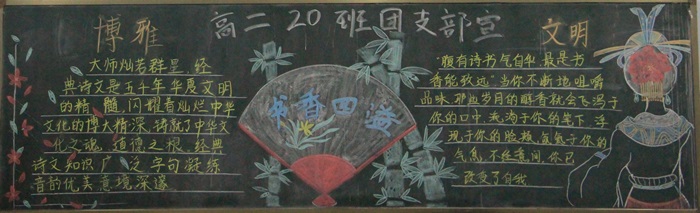 高二20班团支部宣
博雅
大师灿若群星、经
典诗文是五千年华夏文明
的精髓,闪耀着灿烂中华
文化的博大精深,铸就了中华文
化之魂、道德之根。经典
诗文知识广泛字句凝练
音韵优美意境深邃
书香四溢
文明
"腹有诗书气自华,最是书
香能致远"当你不断地咀嚼
品味,那幽岁月的醇香就会飞溅于
你的口中,流淌于你的笔下,浮
现于你的脸颊,氤氲于你的
气质,不经意间,你已
改变了自我